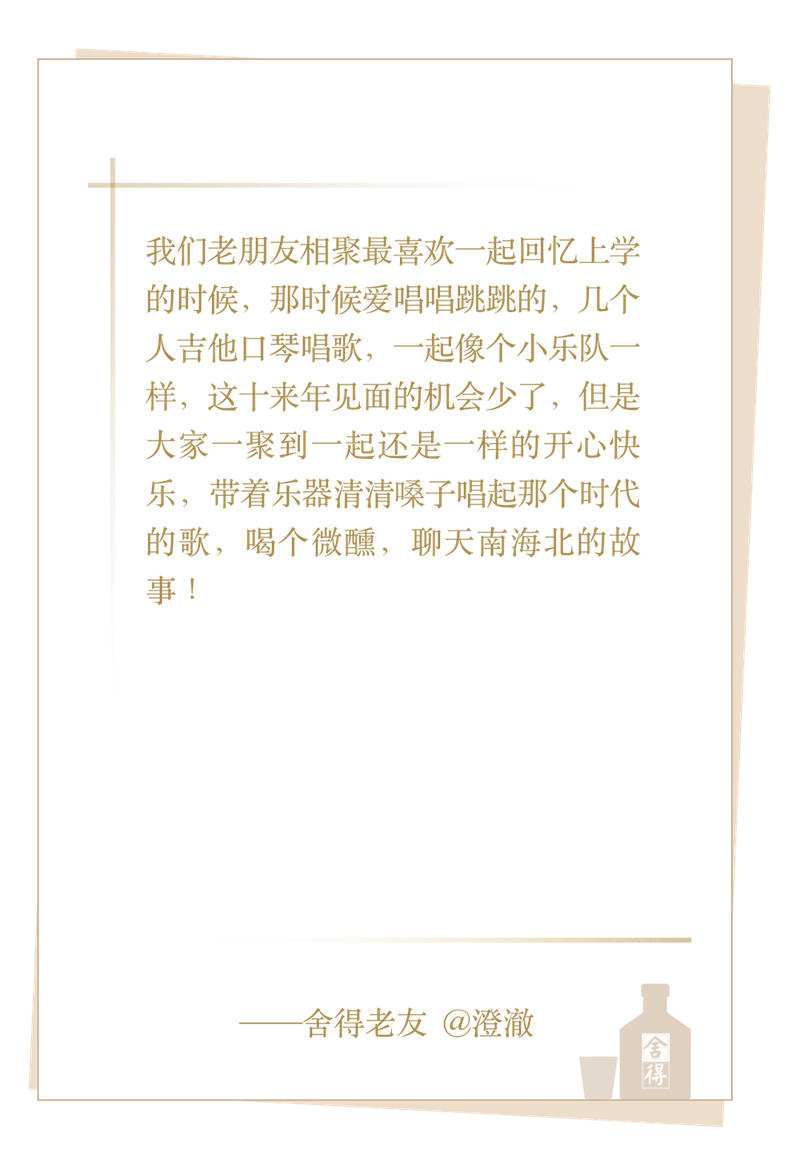 我们老朋友相聚最喜欢一起回忆上学
的时候，那时候爱唱唱跳跳的，几个
人吉他口琴唱歌，一起像个小乐队一
样，这十来年见面的机会少了，但是
大家一聚到一起还是一样的开心快
乐，带着乐器清清嗓子唱起那个时代
的歌，喝个微醺，聊天南海北的故
事！
——舍得老友 @澄澈
舍得